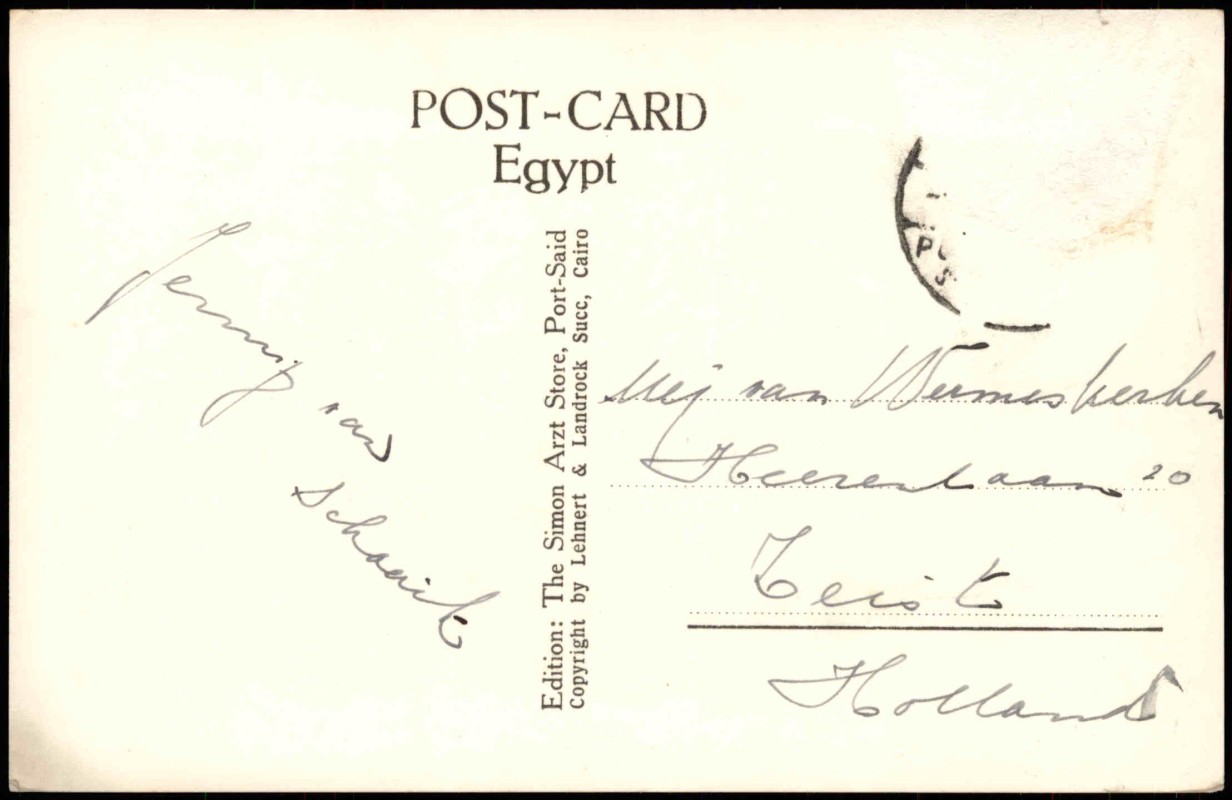 POST-CARD
Egypt
Jenny
van
Schaaik
Edition: The Simon Arzt Store, Port-Said
Copyright by Lehnert & Landrock Succ, Cairo
Mej van Wermeskerken
Heerenlaan 20
Zeist
Holland